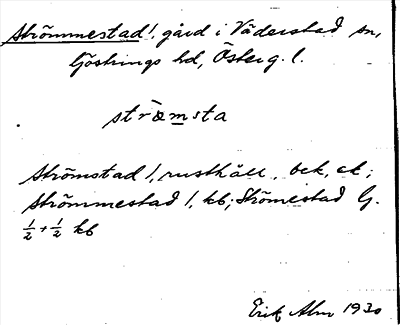 Strömmestad/, gård i Väderstad sn,
Göstrings hd, Österg. l.
strömsta
Strömstad/, rusthåll, bek, ek;
Strömmestad/, kb; Strömestad G.
½ + ½ kb
Erik Alm 1930